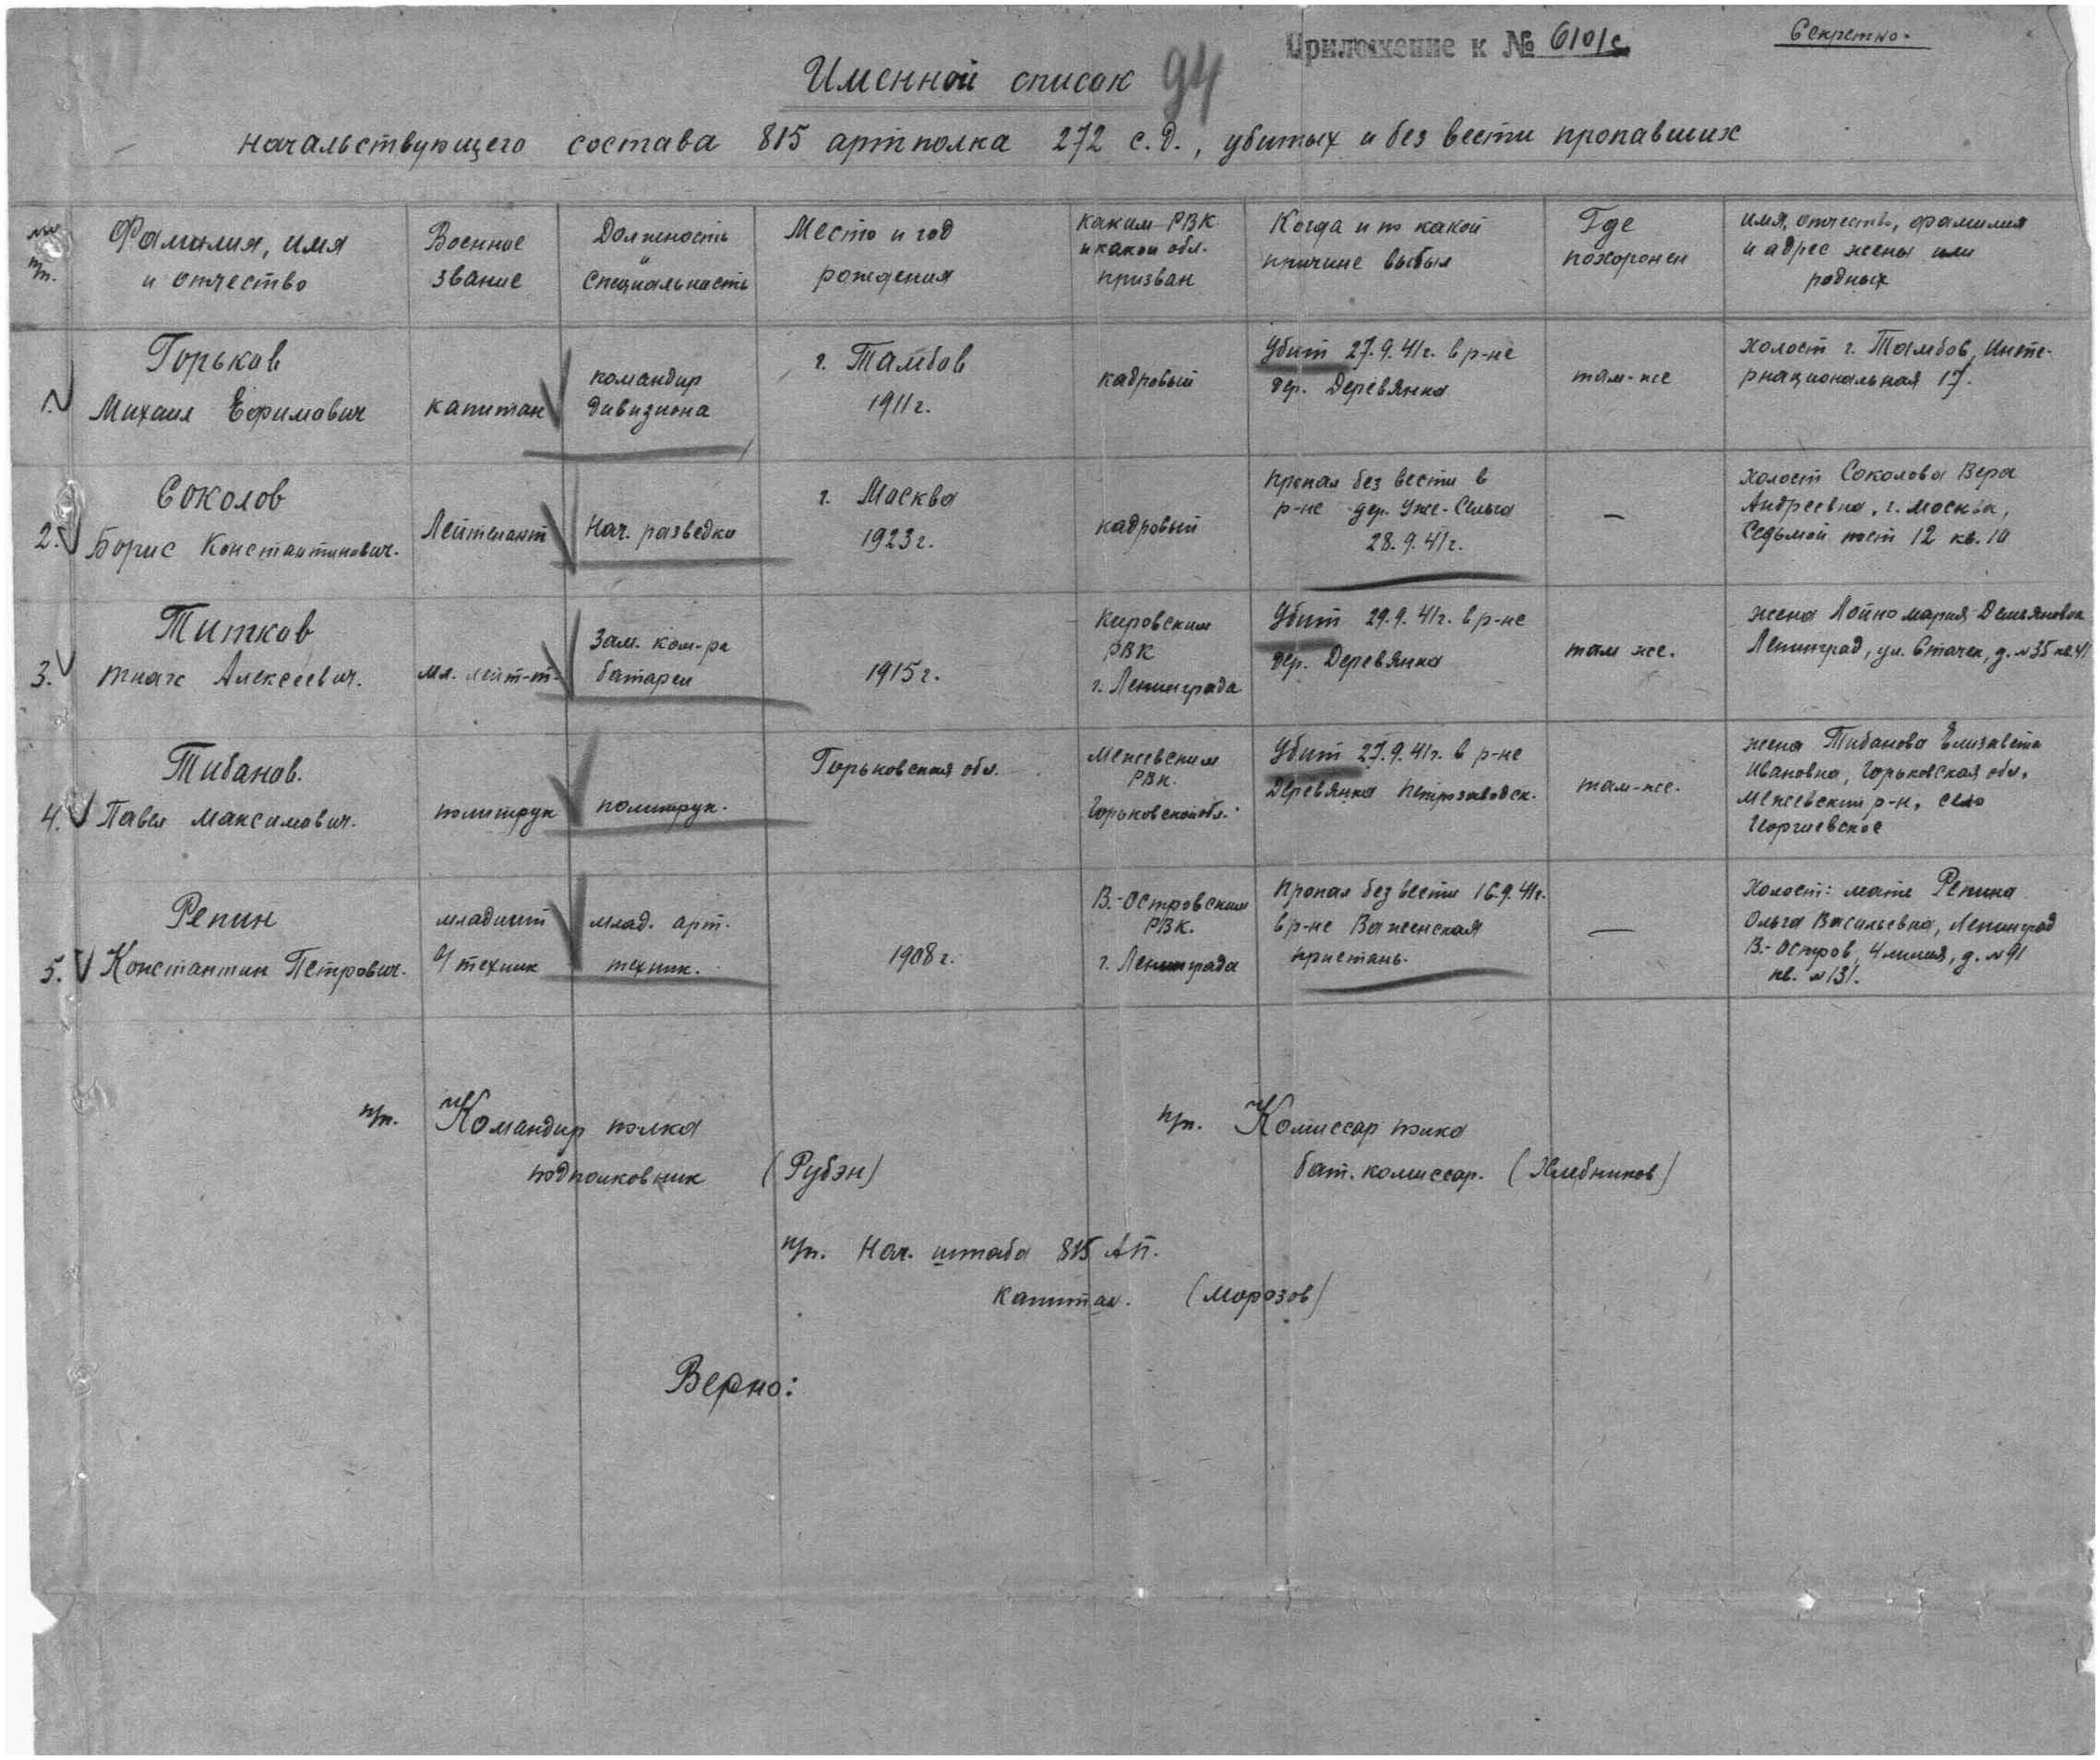 Приложение к № 6101с
Секретно.
Именной список 94
начальствующего состава 815 артполка 272 с.д., убитых и без вести пропавших
№№ пп.
Фамилия, имя
и отчество
Военное
звание
Должность
и
специальность
Место и год
рождения
Каким РВК
и какой обл.
призван
Когда и по какой
причине выбыл
Где
похоронен
имя, отчество, фамилия
и адрес жены или
родных
1.
Горьков
Михаил Ефимович
капитан
командир
дивизиона
г. Тамбов
1911 г.
кадровый
Убит 27.9.41г. в р-не
дер. Деревянка
там-же
Холост г. Тамбов, Инте-
рнациональная 17.
2.
Соколов
Борис Константинович.
Лейтенант
Нач. разведки
г. Москва
1923 г.
кадровый
пропал без вести в
р-не дер. Уже-Сельга
28.9.41г.
—
холост Соколова Вера
Андреевна, г. Москва,
Седьмой 12 кв. 10
3.
Титков
Алексеевич.
мл. лейт-т.
Зам. ком-ра
батареи
1915 г.
Кировским
РВК
г. Ленинграда
Убит 29.9.41г. в р-не
дер. Деревянка
там же.
жена Лойно Мария Демьяновна
Ленинград, ул. Стачек, д. №35 кв 41
4.
Тибанов.
Павел Максимович.
политрук
политрук.
Горьковская обл.
Межевским
РВК.
Горьковской обл.
Убит 27.9.41г. в р-не
Деревянка Петрозаводск.
там-же.
жена Тибанова Елизавета
Ивановна, Горьковская обл.
Межевский р-н, село
Георгиевское
5.
Репин
Константин Петрович.
младший
в/техник
млад. арт.
техник.
1908 г.
В.-Островским
РВК.
г. Ленинграда
Пропал без вести 16.9.41г.
в р-не Важенская
пристань.
—
Холост: мать Репина
Ольга Васильевна, Ленинград
В.-Остров, 4 линия, д. №91
кв. №131.
п/п. Командир полка
подполковник (Рубэн)
п/п. Комиссар полка
бат. комиссар. (Хлебников)
п/п. Нач. штаба 815 АП.
капитан. (Морозов)
Верно: